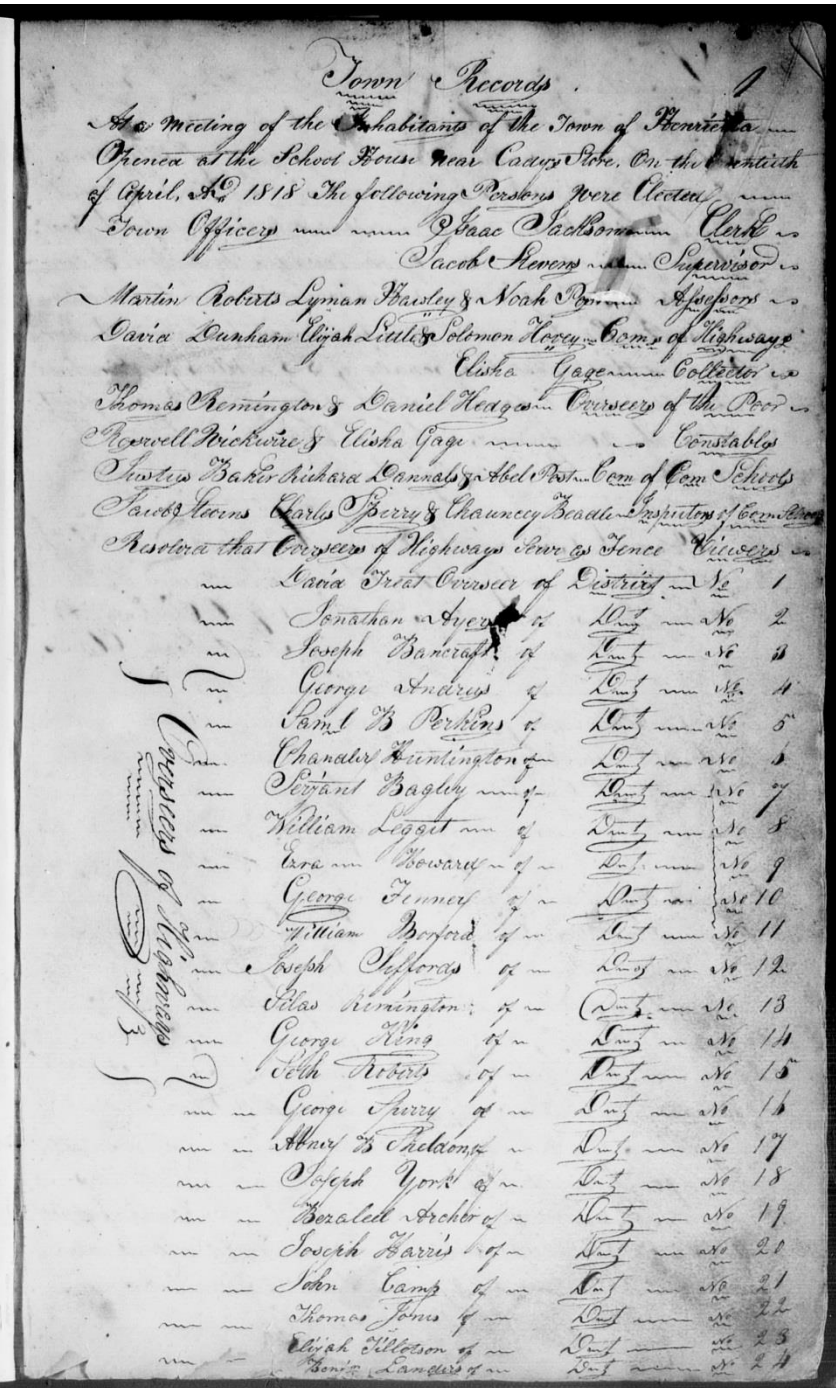 Town Records. 1
At a meeting of the Inhabitants of the Town of Henrietta
Opened at the School House near Cadys Store. On the
of April, AD 1818 The following Persons Were Elected
Town Officers Isaac Jackson Clerk
Jacob Stevens Supervisor
Martin Roberts Lyman Hawley & Noah Assessors
David Dunham Elijah Little & Solomon Hovey Com. of Highways
Elisha Gage Collector
Thomas Remington & Daniel Hedges Overseers of the Poor
Roswell Wickwire & Elisha Gage Constables
Justus Baker Richard Dannals & Abel Post Com of Com Schools
Jacob Stevens Charles Sperry & Chauncey Beadle Inspectors of Com Schools
Resolved that Overseers of Highways Serve as Fence Viewers
David Treat Overseer of District No 1
Jonathan Ayers of Do No 2
Joseph Bancraft of No 3
George Andrus of No 4
Saml B Perkins of No 5
Chandler Huntington of No 6
Serjant Bagley of No 7
William Leggit of No 8
Ezra Howard of No 9
George Tenney of No 10
William of No 11
Joseph Siffords of No 12
Silas Remington of No 13
George King of No 14
Seth Roberts of No 15
George Sperry of No 16
Abner B Sheldon of No 17
Joseph York of No 18
Bezaleel Archer of No 19
Joseph Harris of No 20
John Camp of No 21
Thomas Jones of No 22
Elijah Tillotson of No 23
Benjn Landers of No 24
Overseers of Highways